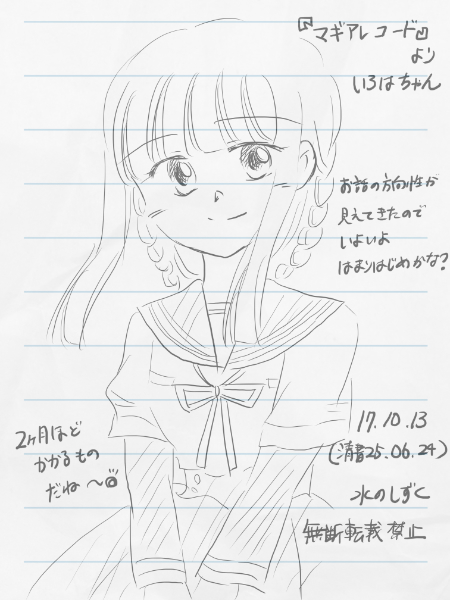 『マギアレコード』
より
いろはちゃん
お話の方向性が
見えてきたので
いよいよ
はまりはじめかな?
2ヶ月ほど
かかるもの
だね〜
17.10.13
(清書25.06.24)
水のしずく
無断転載禁止